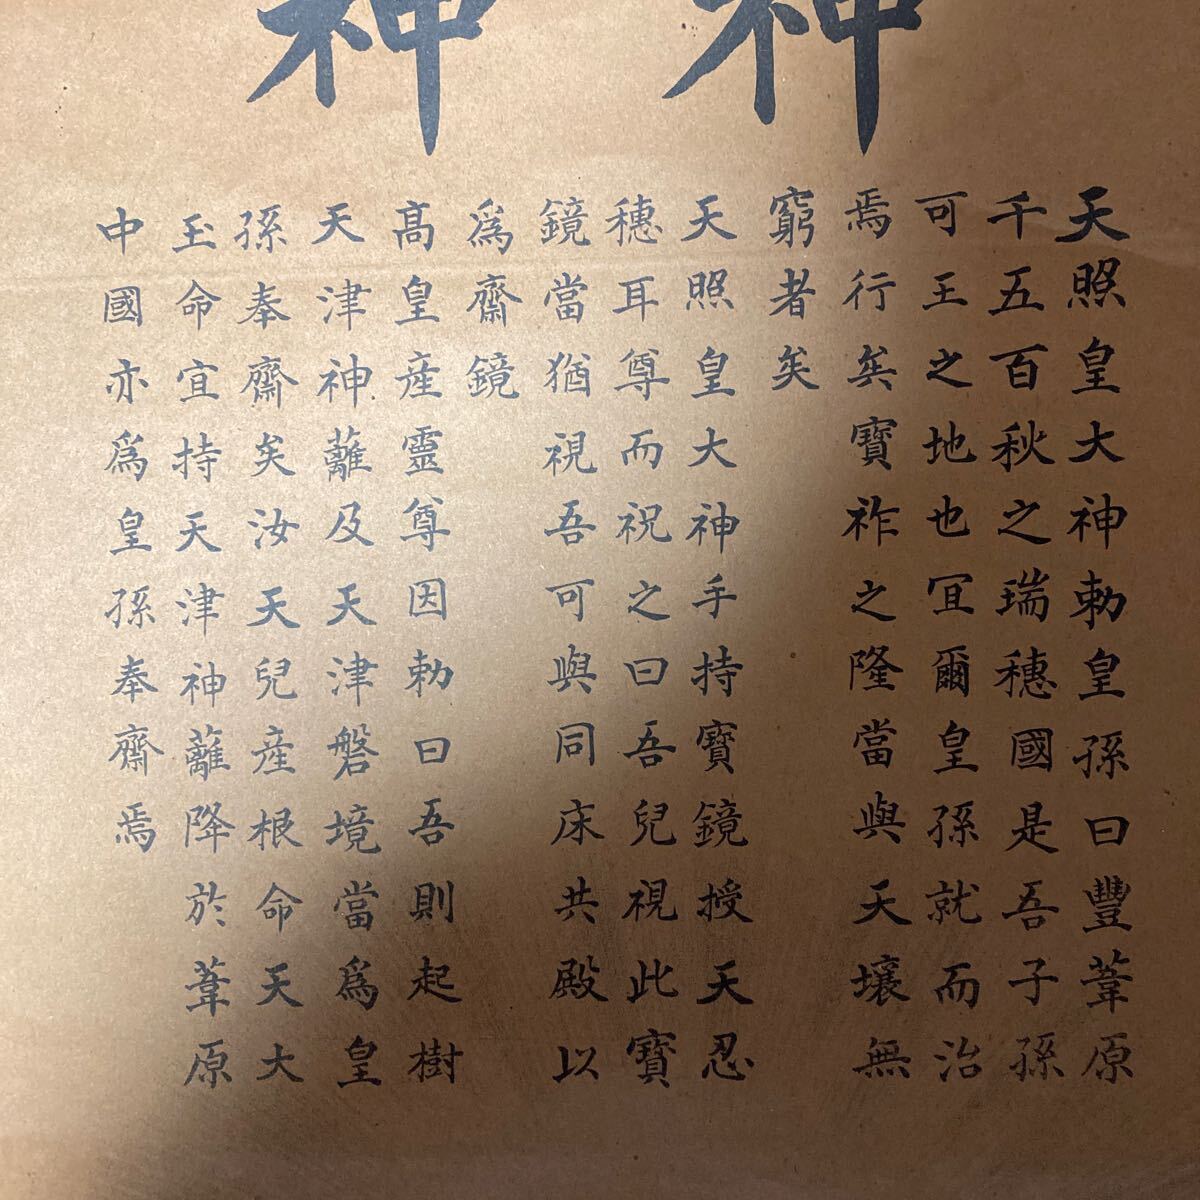 神
神
天照皇大神勅皇孫曰豐葦原
千五百秋之瑞穗國是吾子孫
可王之地也冝爾皇孫就而治
焉行矣寶祚之隆當與天壤無
窮者矣
天照皇大神手持寶鏡授天忍
穗耳尊而祝之曰吾兒視此寶
鏡當猶視吾可與同床共殿以
爲齋鏡
高皇産靈尊因勅曰吾則起樹
天津神蘺及天津磐境當爲皇
孫奉齋矣汝天兒産根命天大
玉命宜持天津神蘺降於葦原
中國亦爲皇孫奉齋焉